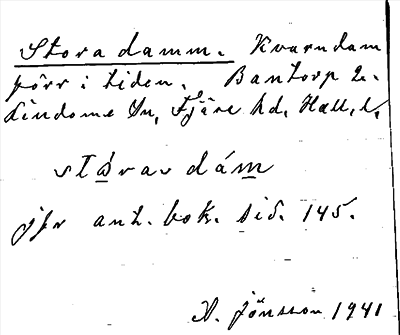 Stora damm. Kvarndam
förr i tiden. Bantorp 2.
Lindome Sn, Fjäre hd, Hall. l.
stárav dám
jfr ant. bok. sid. 145.
A. Jönsson 1941